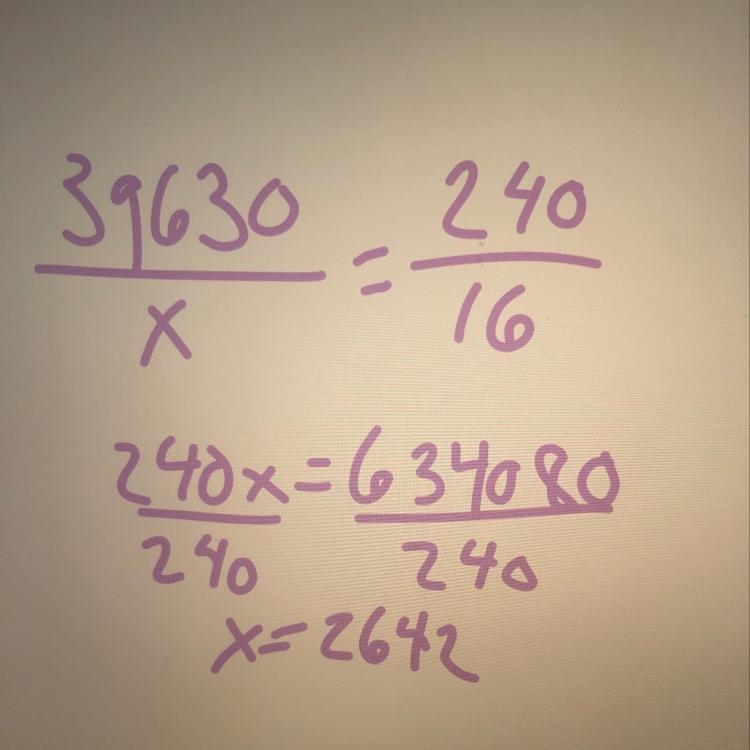 39630/x = 240/16
240x/240 = 634080/240
x = 2642